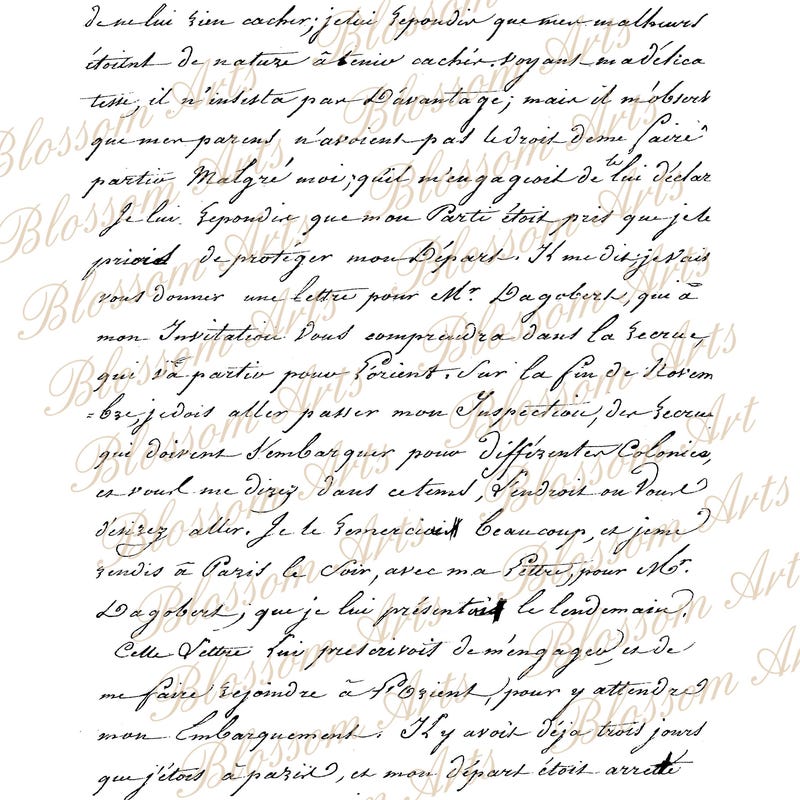 de ne lui rien cacher; je lui repondis que mes malheurs
étoient de nature à tenir cachés. voyant ma délica
tesse, il n'insista pas d'avantage; mais il m'observ
que mes parens n'avoient pas le droit de me faire
partir Malgré moi; qu'il m'engageoit de te lui déclar
Je lui repondis que mon Parti étoit pris que je le
priois de protéger mon Départ. Il me dit; je vais
vous donner une lettre pour Mr. Dagobert, qui à
mon Invitation vous comprendra dans la recrue,
qui va partir pour l'orient. Sur la fin de Novem
=bre, je dois aller passer mon Inspection, des recrue
qui doivent s'embarquer pour différentes Colonies,
et vous me direz dans ce tems, l'endroit ou vous
désirez aller. Je le remerciois beaucoup, et je me
rendis à Paris le soir, avec ma lettre, pour Mr.
Dagobert; que je lui présentois le lendemain.
Cette lettre lui prescrivoit de m'engager, et de
me faire rejoindre à l'Orient, pour y attendre
mon Embarquement. Il y avoit déja trois jours
que j'étois à paris, et mon départ étoit arretté
Blossom Arts
Blossom Arts
Blossom Arts
Blossom Arts
Blossom Arts
Blossom Arts
Blossom Arts
Blossom Arts
Blossom Arts
Blossom Arts
Blossom Arts
Blossom Arts